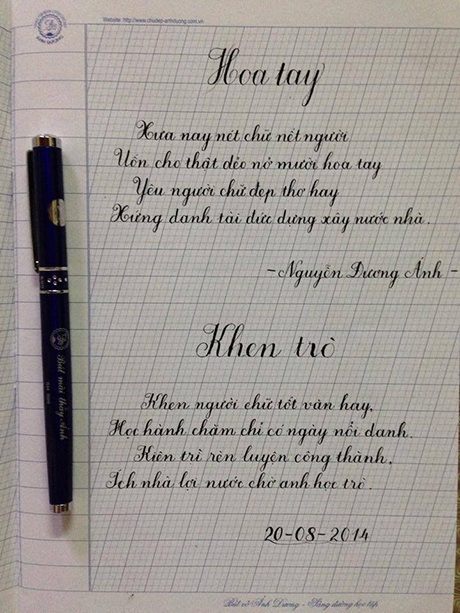 Website: http://www.chudep-anhduong.com.vn
ÁNH DƯƠNG
Hoa tay
Xưa nay nét chữ nết người
Uốn cho thật dẻo nở mười hoa tay
Yêu người chữ đẹp thơ hay
Xứng danh tài đức dựng xây nước nhà.
-Nguyễn Dương Ánh-
Khen trò
Khen người chữ tốt văn hay,
Học hành chăm chỉ có ngày nổi danh.
Kiên trì rèn luyện công thành,
Ích nhà lợi nước chờ anh học trò.
20-08-2014
Bút mài thầy Ánh
Bút vở Ánh Dương - Nâng đường học tập